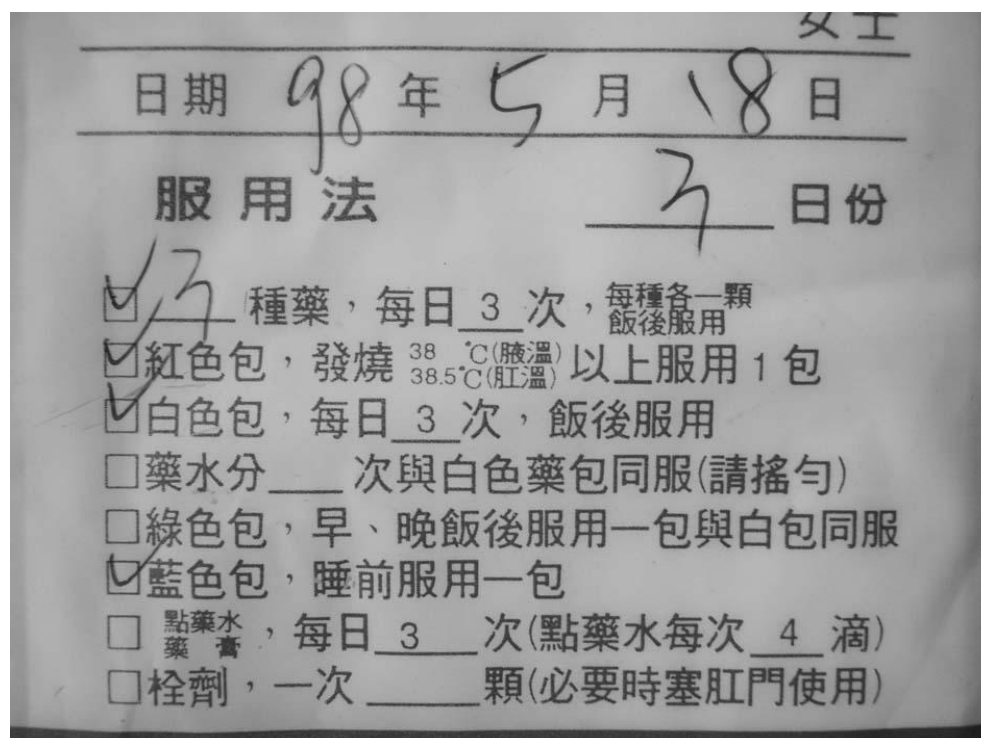 女士
日期 98 年 5 月 18 日
服用法 3 日份
☑ 3 種藥，每日 3 次，每種各一顆 飯後服用
☑紅色包，發燒 38 ℃(腋溫) 38.5℃(肛溫) 以上服用 1 包
☑白色包，每日 3 次，飯後服用
□藥水分___次與白色藥包同服(請搖勻)
□綠色包，早、晚飯後服用一包與白包同服
☑藍色包，睡前服用一包
□ 點藥水 藥膏，每日 3 次(點藥水每次 4 滴)
□栓劑，一次____顆(必要時塞肛門使用)